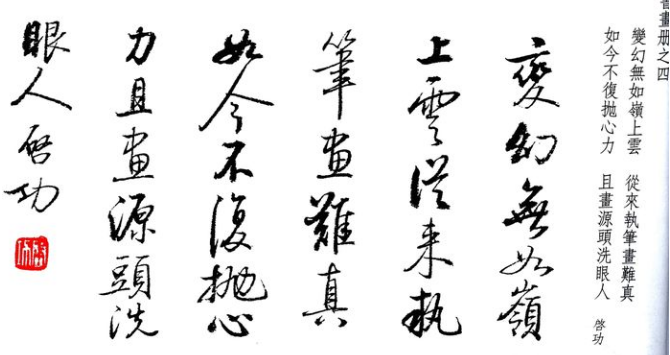 書畫册之四
變幻無如嶺上雲 從來執筆畫難真
如今不復抛心力 且畫源頭洗眼人 啓功
變幻無如嶺
上雲從来執
筆畫難真
如今不復抛心
力且畫源頭洗
眼人啓功
啓功